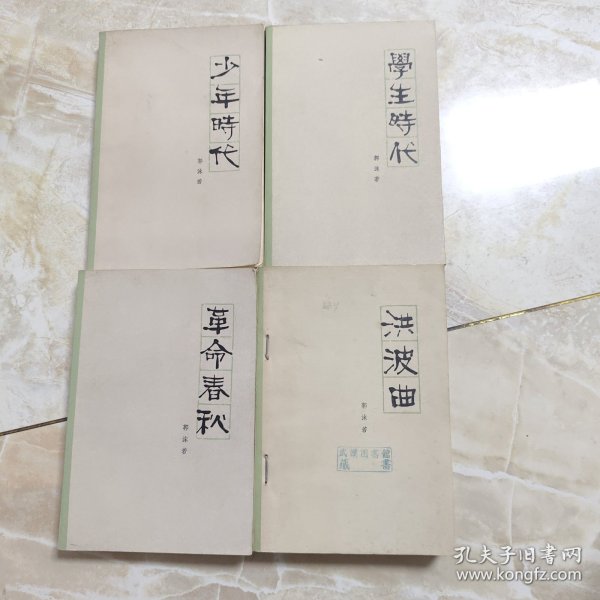 少年時代
郭沫若
學生時代
郭沫若
革命春秋
郭沫若
洪波曲
郭沫若
孔夫子旧书网
www.kongfz.com